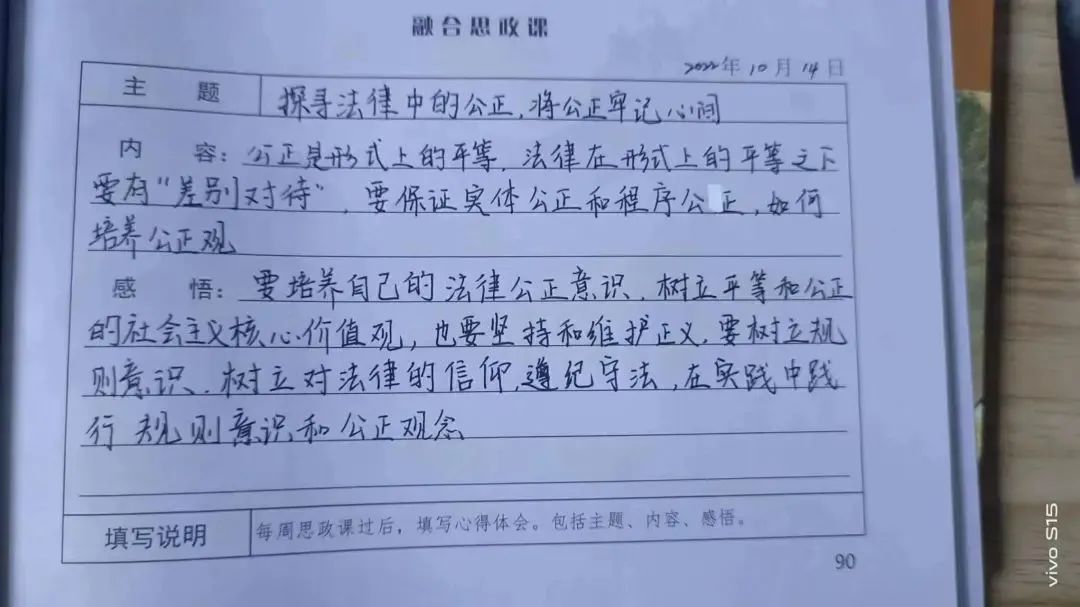 融合思政课
2022年10月14日
主 题 探寻法律中的公正,将公正牢记心间
内 容：公正是形式上的平等.法律在形式上的平等之下
要有"差别对待",要保证实体公正和程序公正,如何
培养公正观
感 悟：要培养自己的法律公正意识.树立平等和公正
的社会主义核心价值观,也要坚持和维护正义.要树立规
则意识.树立对法律的信仰,遵纪守法,在实践中践
行规则意识和公正观念
填写说明 每周思政课过后，填写心得体会。包括主题、内容、感悟。
90
vivo S15